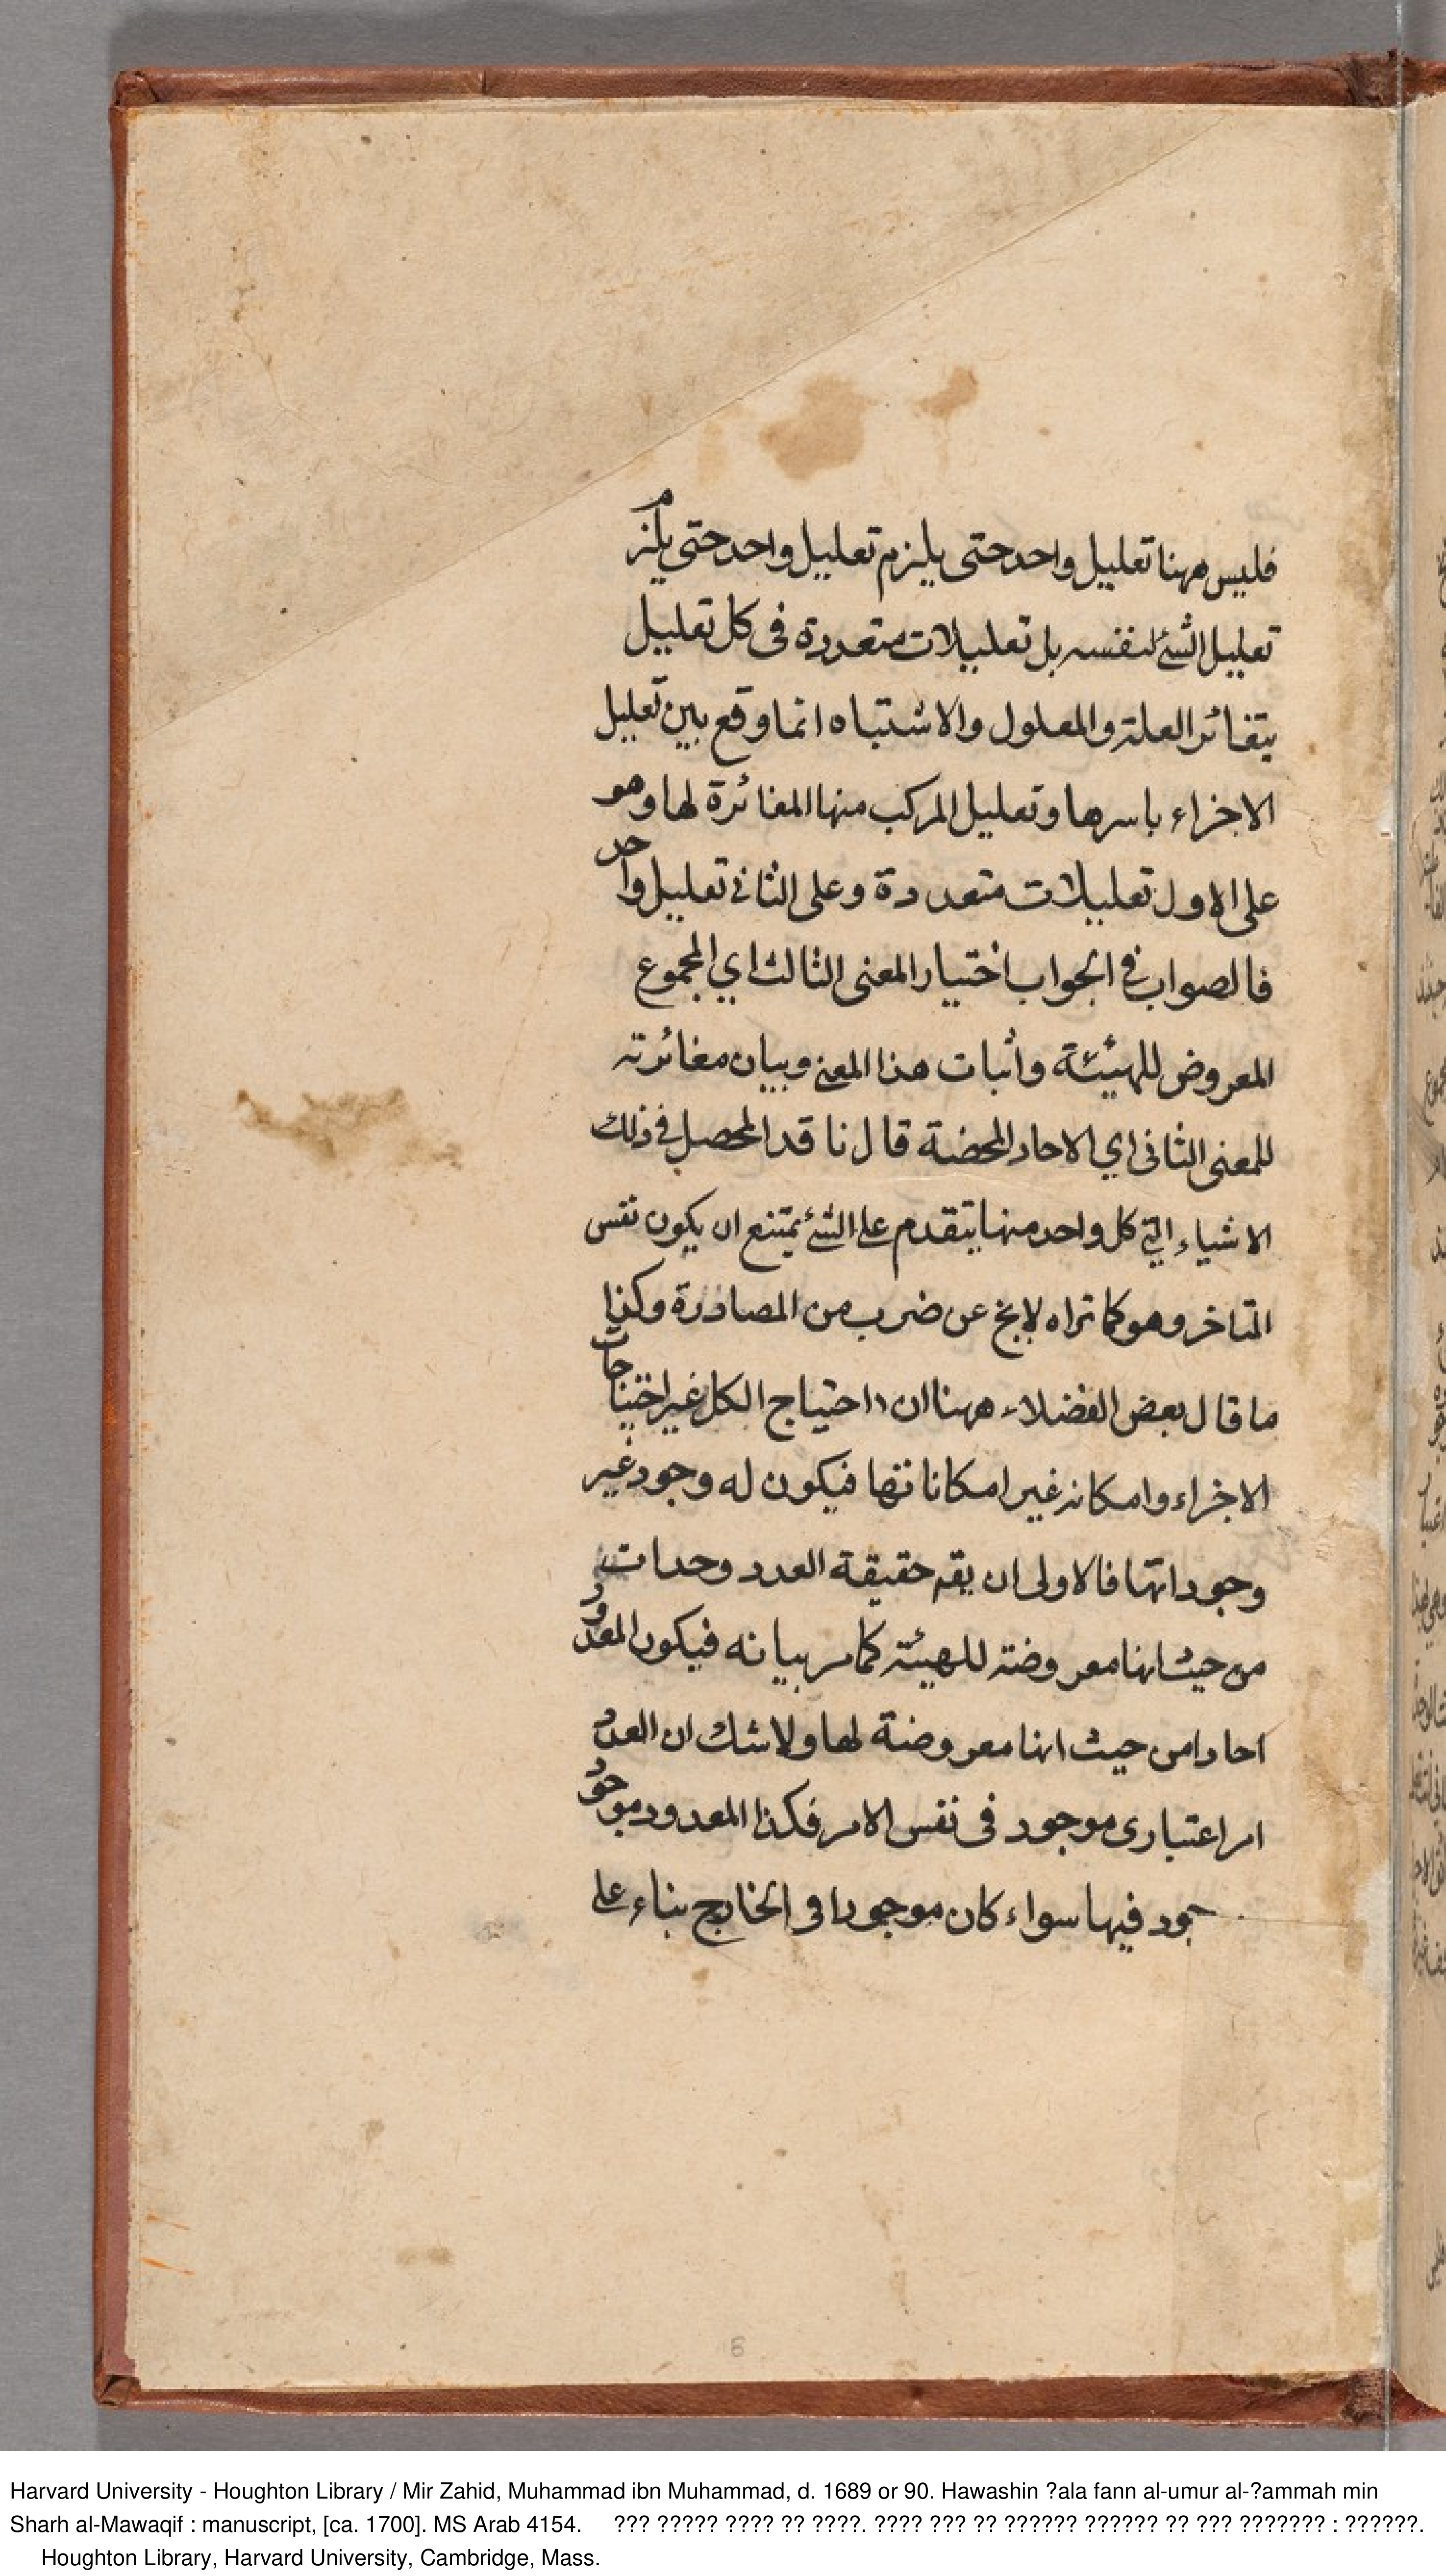 فليس ههنا تعليل واحد حتى يلزم تعليل واحد حتى يلزم
تعليل الشئ لنفسه بل تعليلات متعددة فى كل تعليل
يتغائر العلة والمعلول والاشتباه انما وقع بين تعليل
الاجزاء باسرها وتعليل المركب منها المغائرة لها وهو
على الاول تعليلات متعددة وعلى الثانى تعليل واحد
فالصواب فى الجواب اختيار المعنى الثالث اي المجموع
المعروض للهيئة واثبات هذا المعنى وبيان مغائرته
للمعنى الثانى اي الاحاد المحضة قال ناقد المحصل فى ذلك
الاشياء التى كل واحد منها يتقدم على الشئ يمتنع ان يكون نفس
المتاخر وهو كما تراه لا يخ عن ضرب من المصادرة وكذا
ما قال بعض الفضلاء ههنا ان احتياج الكل غير احتياجات
الاجزاء وامكانه غير امكاناتها فيكون له وجود غير
وجوداتها فالاولى ان يقم حقيقة العدد وحدات
من حيث انها معروضة للهيئة كما مر بيانه فيكون المعدود
احادا من حيث انها معروضة لها ولا شك ان العدد
امر اعتبارى موجود فى نفس الامر فكذا المعدود موجود
جود فيها سواء كان موجودا فى الخارج بناء على
8
Harvard University - Houghton Library / Mir Zahid, Muhammad ibn Muhammad, d. 1689 or 90. Hawashin ?ala fann al-umur al-?ammah min
Sharh al-Mawaqif : manuscript, [ca. 1700]. MS Arab 4154. ??? ????? ???? ?? ????. ???? ??? ?? ?????? ?????? ?? ??? ??????? : ??????.
Houghton Library, Harvard University, Cambridge, Mass.